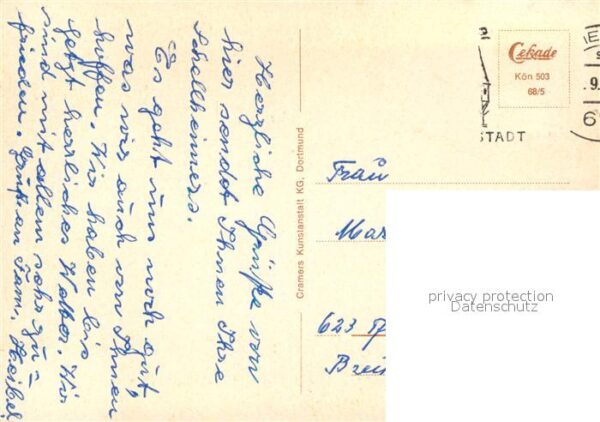 Herzliche Grüße von
hier sendet Ihnen Ihre
Schellheimers.
Es geht uns noch gut,
was wir auch von Ihnen
hoffen. Wir haben bis
jetzt herrliches Wetter. Wir
sind mit allem sehr zu-
frieden. Gruß an Fam. Heibel
Cramers Kunstanstalt KG, Dortmund
Cekade
Kön 503
68/5
STADT
9.
6
Frau
Mar
623
Brei
privacy protection
Datenschutz